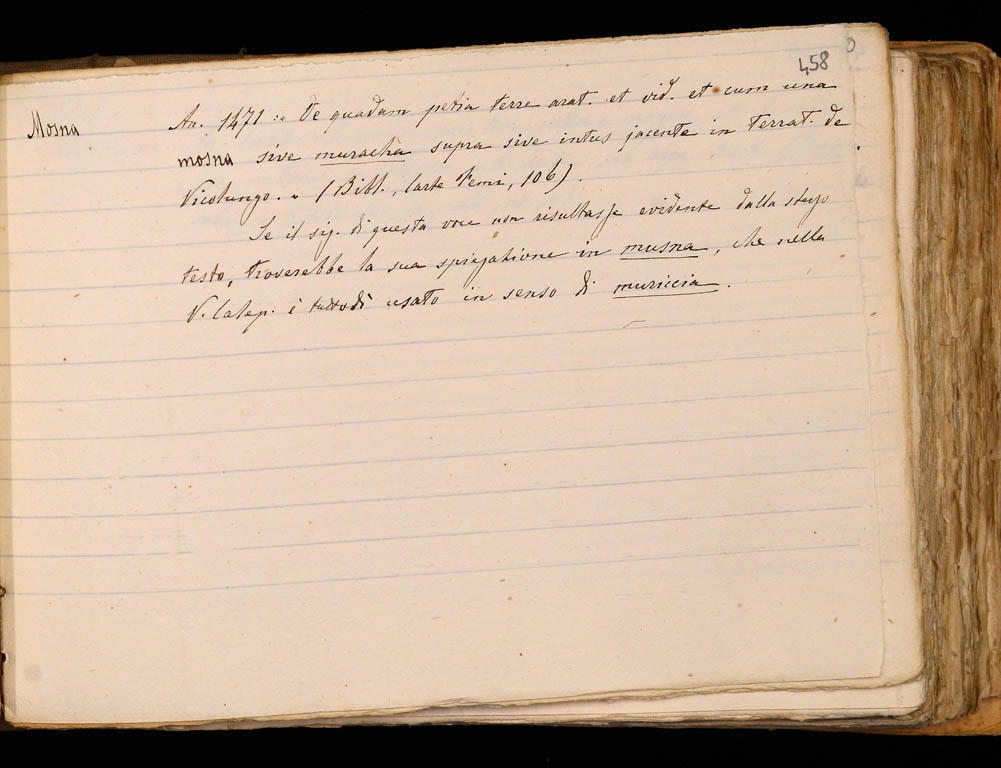 458
Mosna An. 1471: « De quadam petia terre arat. et vid. et cum una
mosna sive muracha supra sive intus jacente in Terrat. de
Vicolungo. » (Bibl., Carte Temi, 106).
Se il sig. di questa voce non risultasse evidente dallo stesso
testo, troverebbe la sua spiegazione in musna, che nella
V. Calep. è tuttodì usato in senso di muriccia.